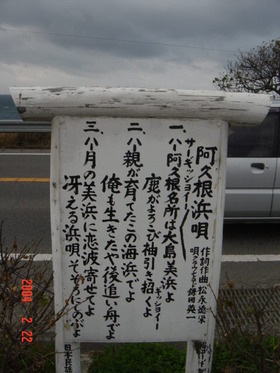 阿久根浜唄
作詞作曲 松永
唄
サーギッショイ
一、ハ阿久根名所は大島美浜よ
ギッショイー
鹿がまつび袖引き招くよ
二、ハ親が育てたこの海浜でよ
俺も生きたや後追い舟でよ
三、ハ八月の美浜に恋波寄せてよ
冴える浜唄、そぞろにのびよ
日本民謡
2008 2 22